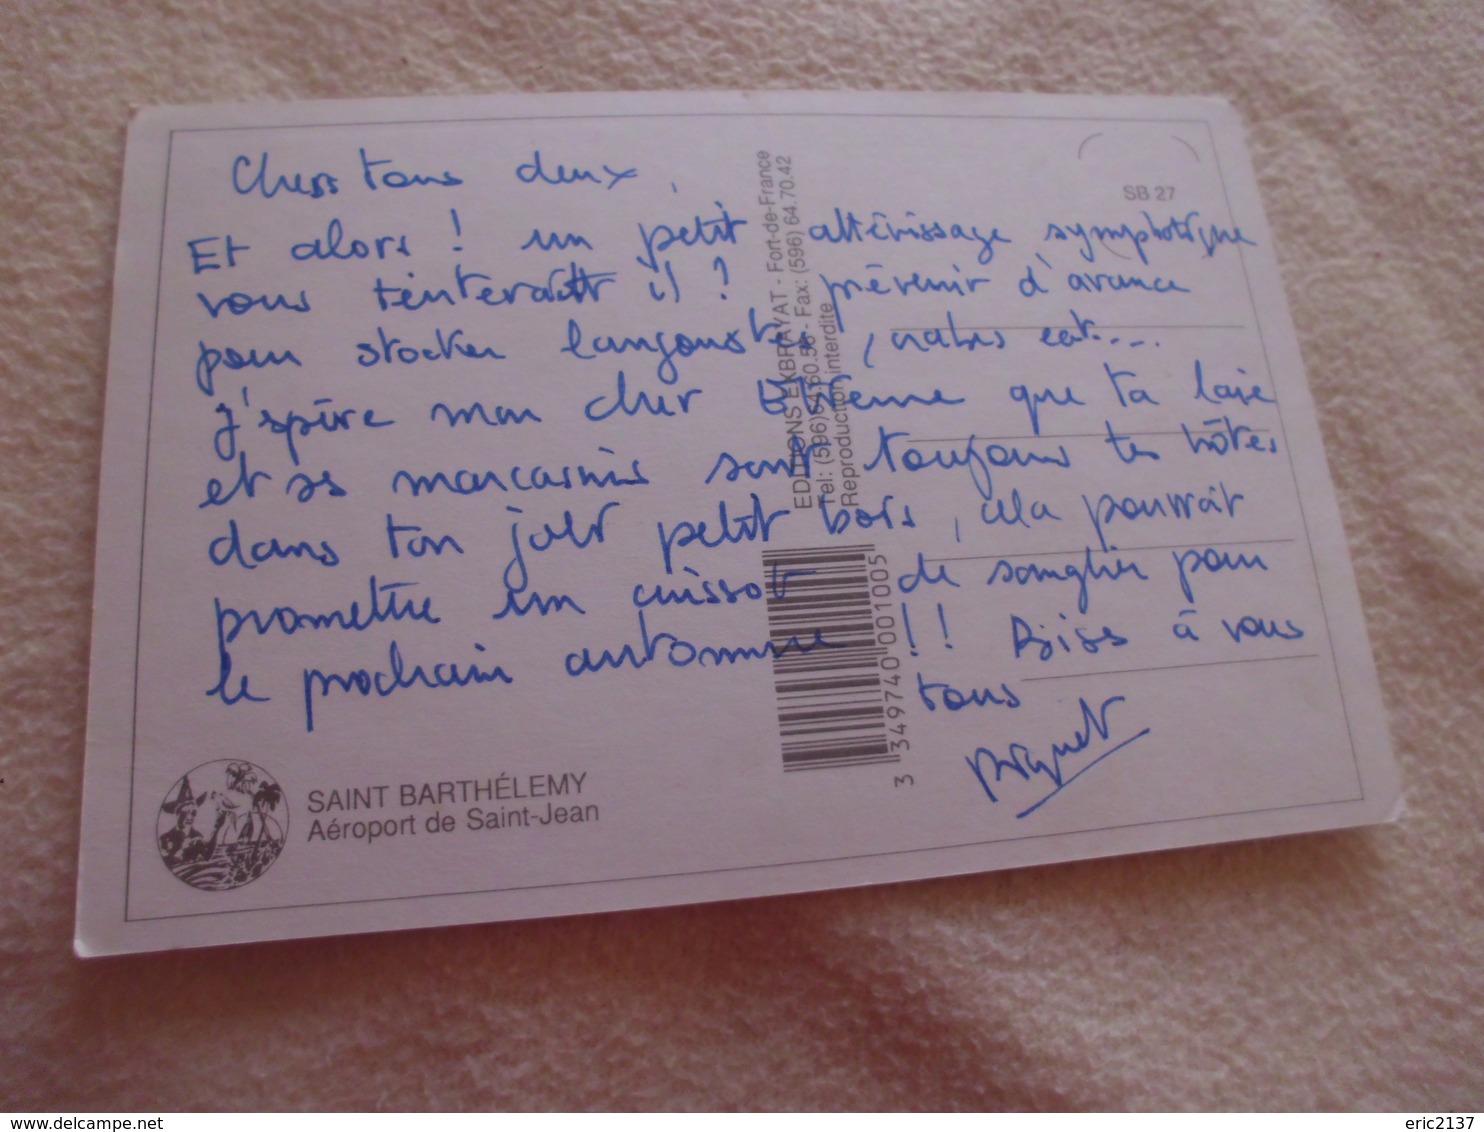 Chers tous deux,
Et alors ! un petit attérissage symphotique
vous tenterait il ? prévenir d'avance
pour stocker langoustes, crabes ect....
J'spère mon cher Etienne que ta laie
et ses marcassins sont toujours tes hôtes
dans ton joli petit bois, cela pourrait
promettre un cuissot de sanglier pour
le prochain automne !! Bises à vous
tous
SB 27
EDITIONS EXBRAYAT - Fort-de-France
Tel: (596) 64.60.58 - Fax: (596) 64.70.42
Reproduction interdite
3 349740 001005
SAINT BARTHÉLEMY
Aéroport de Saint-Jean
eric2137